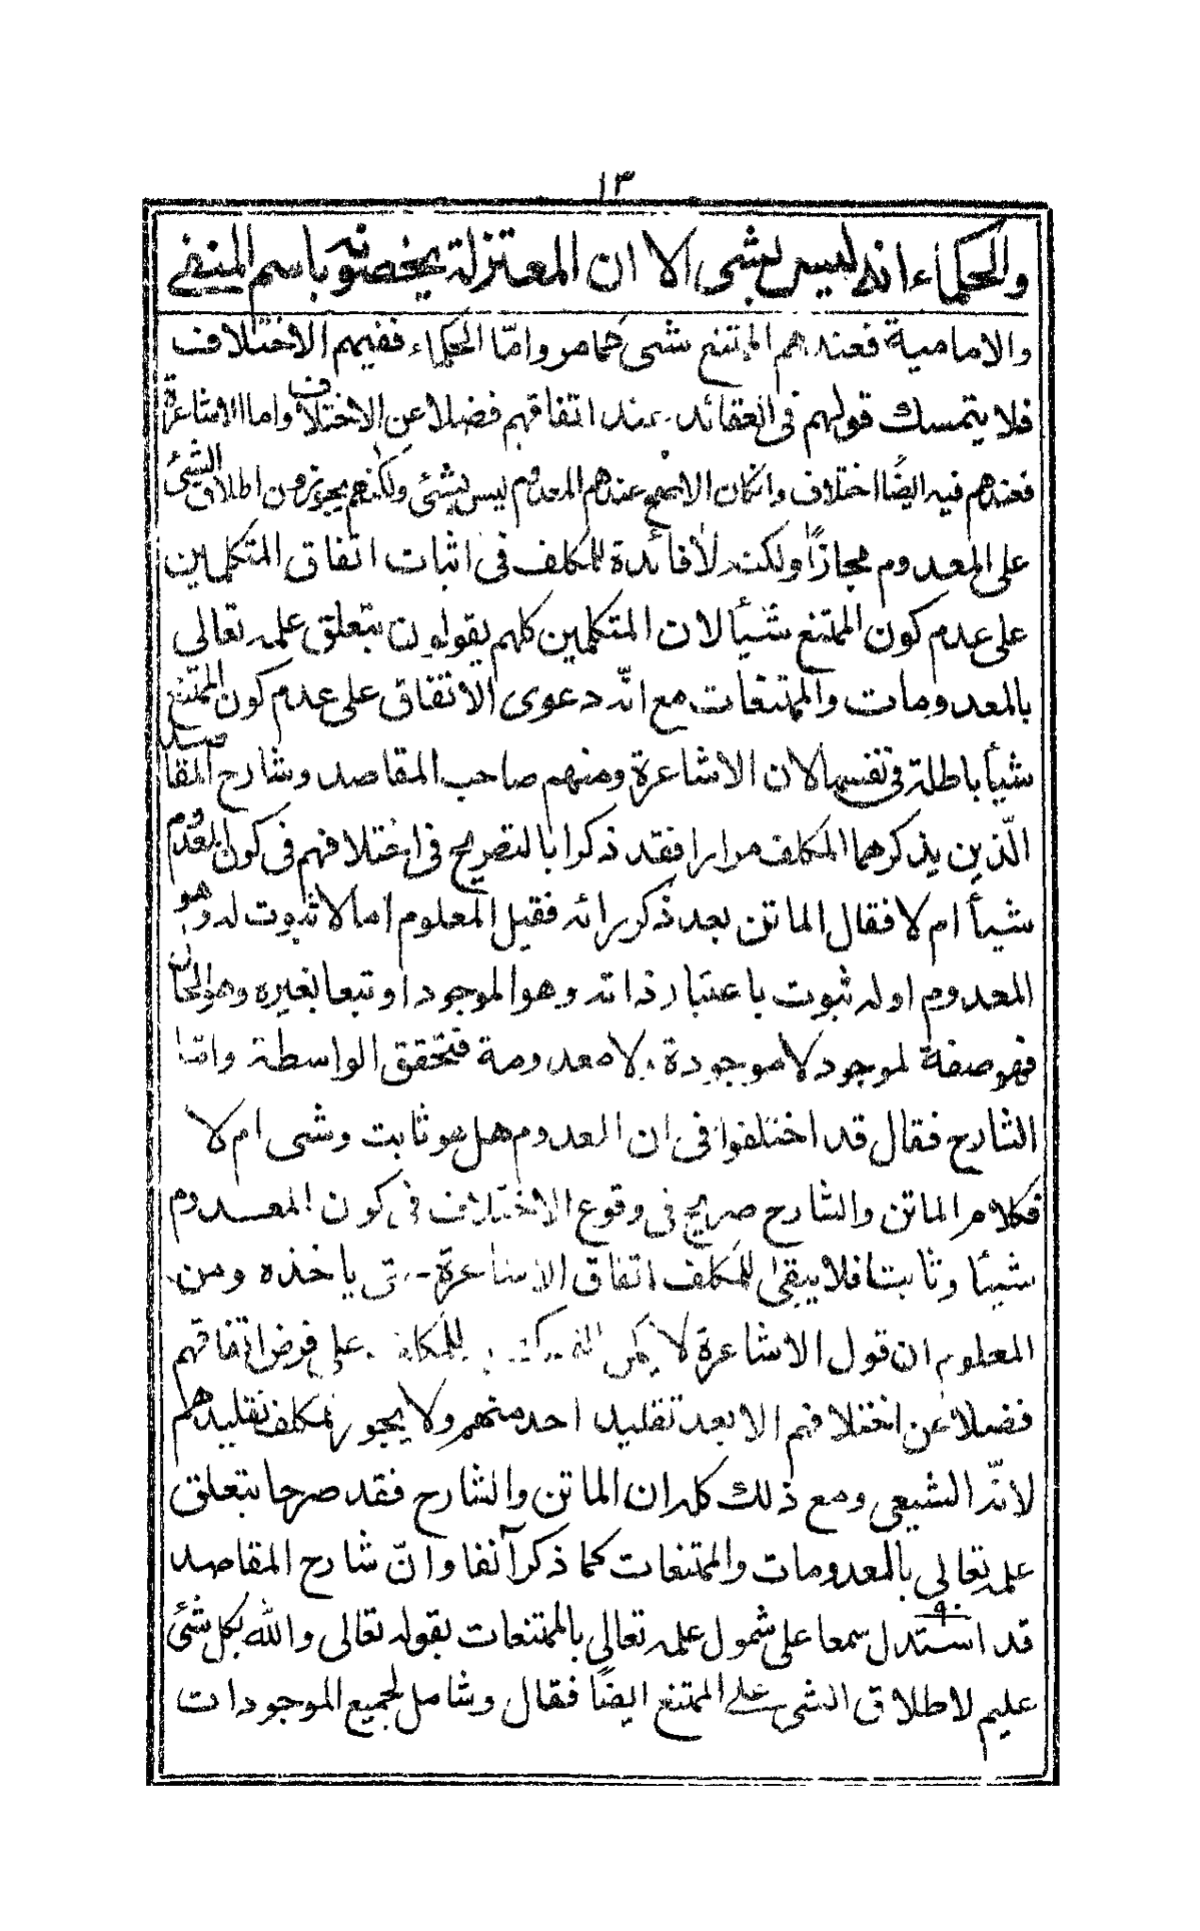 ١٣
والحكماء انه ليس بشى الا ان المعتزلة يخصونه باسم المنفى
والامامية فعندهم الممتنع شىٔ كما مر وامّا الحكماء ففيهم الاختلاف
فلا يتمسك قولهم فى العقائد عند اتفاقهم فضلا عن الاختلاف واما الاشاعرة
فعندهم فيه ايضًا اختلاف وانكان الاصح عندهم المعدوم ليس بشئى ولكنهم يجوزون اطلاق الشئى
على المعدوم مجازًا ولكنه لا فائدة للمكلف فى اثبات اتفاق المتكلمين
على عدم كون الممتنع شيأ لان المتكلمين كلهم يقولون بتعلق علمه تعالى
بالمعدومات والممتنعات مع انّه دعوى الاتفاق على عدم كون الممتنع
شيأ باطلة فى نفسها لان الاشاعرة ومنهم صاحب المقاصد وشارح المقاصد
الّذين يذكرهما المكلف مرارا فقد ذكرا بالتصريح فى اختلافهم فى كون المعدوم
شيأ ام لا فقال الماتن بعد ذكر رائه فقيل المعلوم اما لا ثبوت له وهو
المعدوم اوله ثبوت باعتبار ذاته وهو الموجود او تبعا لغيره وهو الحال
فهو صفة لموجود لا موجودة ولا معدومة فتحقق الواسطة وامّا
الشارح فقال قد اختلفوا فى ان المعدوم هل هو ثابت وشى ام لا
فكلام الماتن والشارح صريح فى وقوع الاختلاف فى كون المعدوم
شيئا وثابتا فلا يبقى للمكلف اتفاق الاشاعرة حتى ياخذه ومن
المعلوم ان قول الاشاعرة لا يمكن للمكلف على فرض اتفاقهم
فضلا عن اختلافهم الا بعد تقليد احد منهم ولا يجوز للمكلف تقليدهم
لانّه الشيعى ومع ذلك كله ان الماتن والشارح فقد صرحا بتعلق
علمه تعالى بالمعدومات والممتنعات كما ذكر آنفا وانّ شارح المقاصد
٩٠
قد استدل سمعا على شمول علمه تعالى بالممتنعات بقوله تعالى والله بكل شئى
عليم لاطلاق الشى على الممتنع ايضًا فقال وشامل لجميع الموجودات